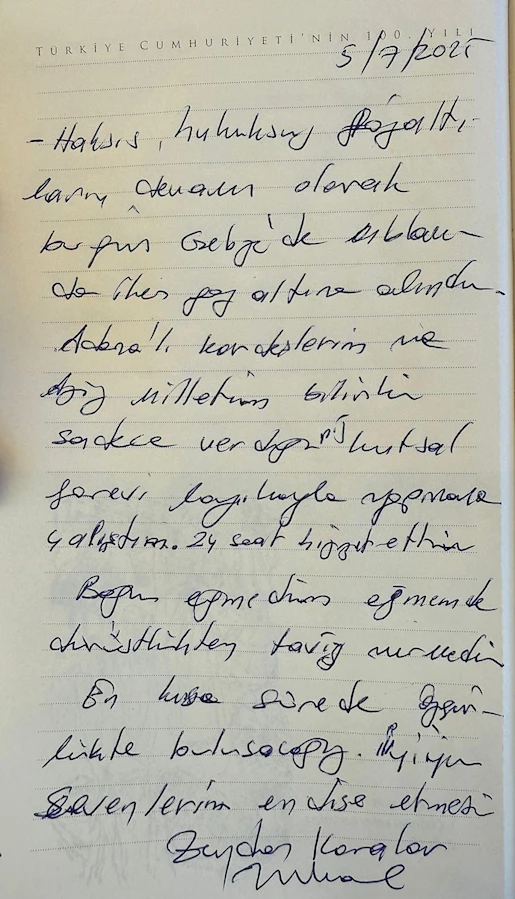 TÜRKİYE CUMHURİYETİ'NİN 100. YILI
5/7/2025
- Haksız, hukuksuz gözaltı-
ların devamı olarak
bugün Gebze'de ablam-
da iken göz altına alındım.
Adana'lı kardeşlerim ve
Aziz milletim bilirki
sadece verdiğiniz kutsal
görevi layıkıyla yapmaya
çalıştım. 24 saat hizmet ettim
Boyun eğmedim eğmemek
dürüstlükten taviz vermedim
En kısa sürede özgür-
lükte buluşacağız. İyiyim
Sevenlerim endişe etmesin
Zeydan Karalar